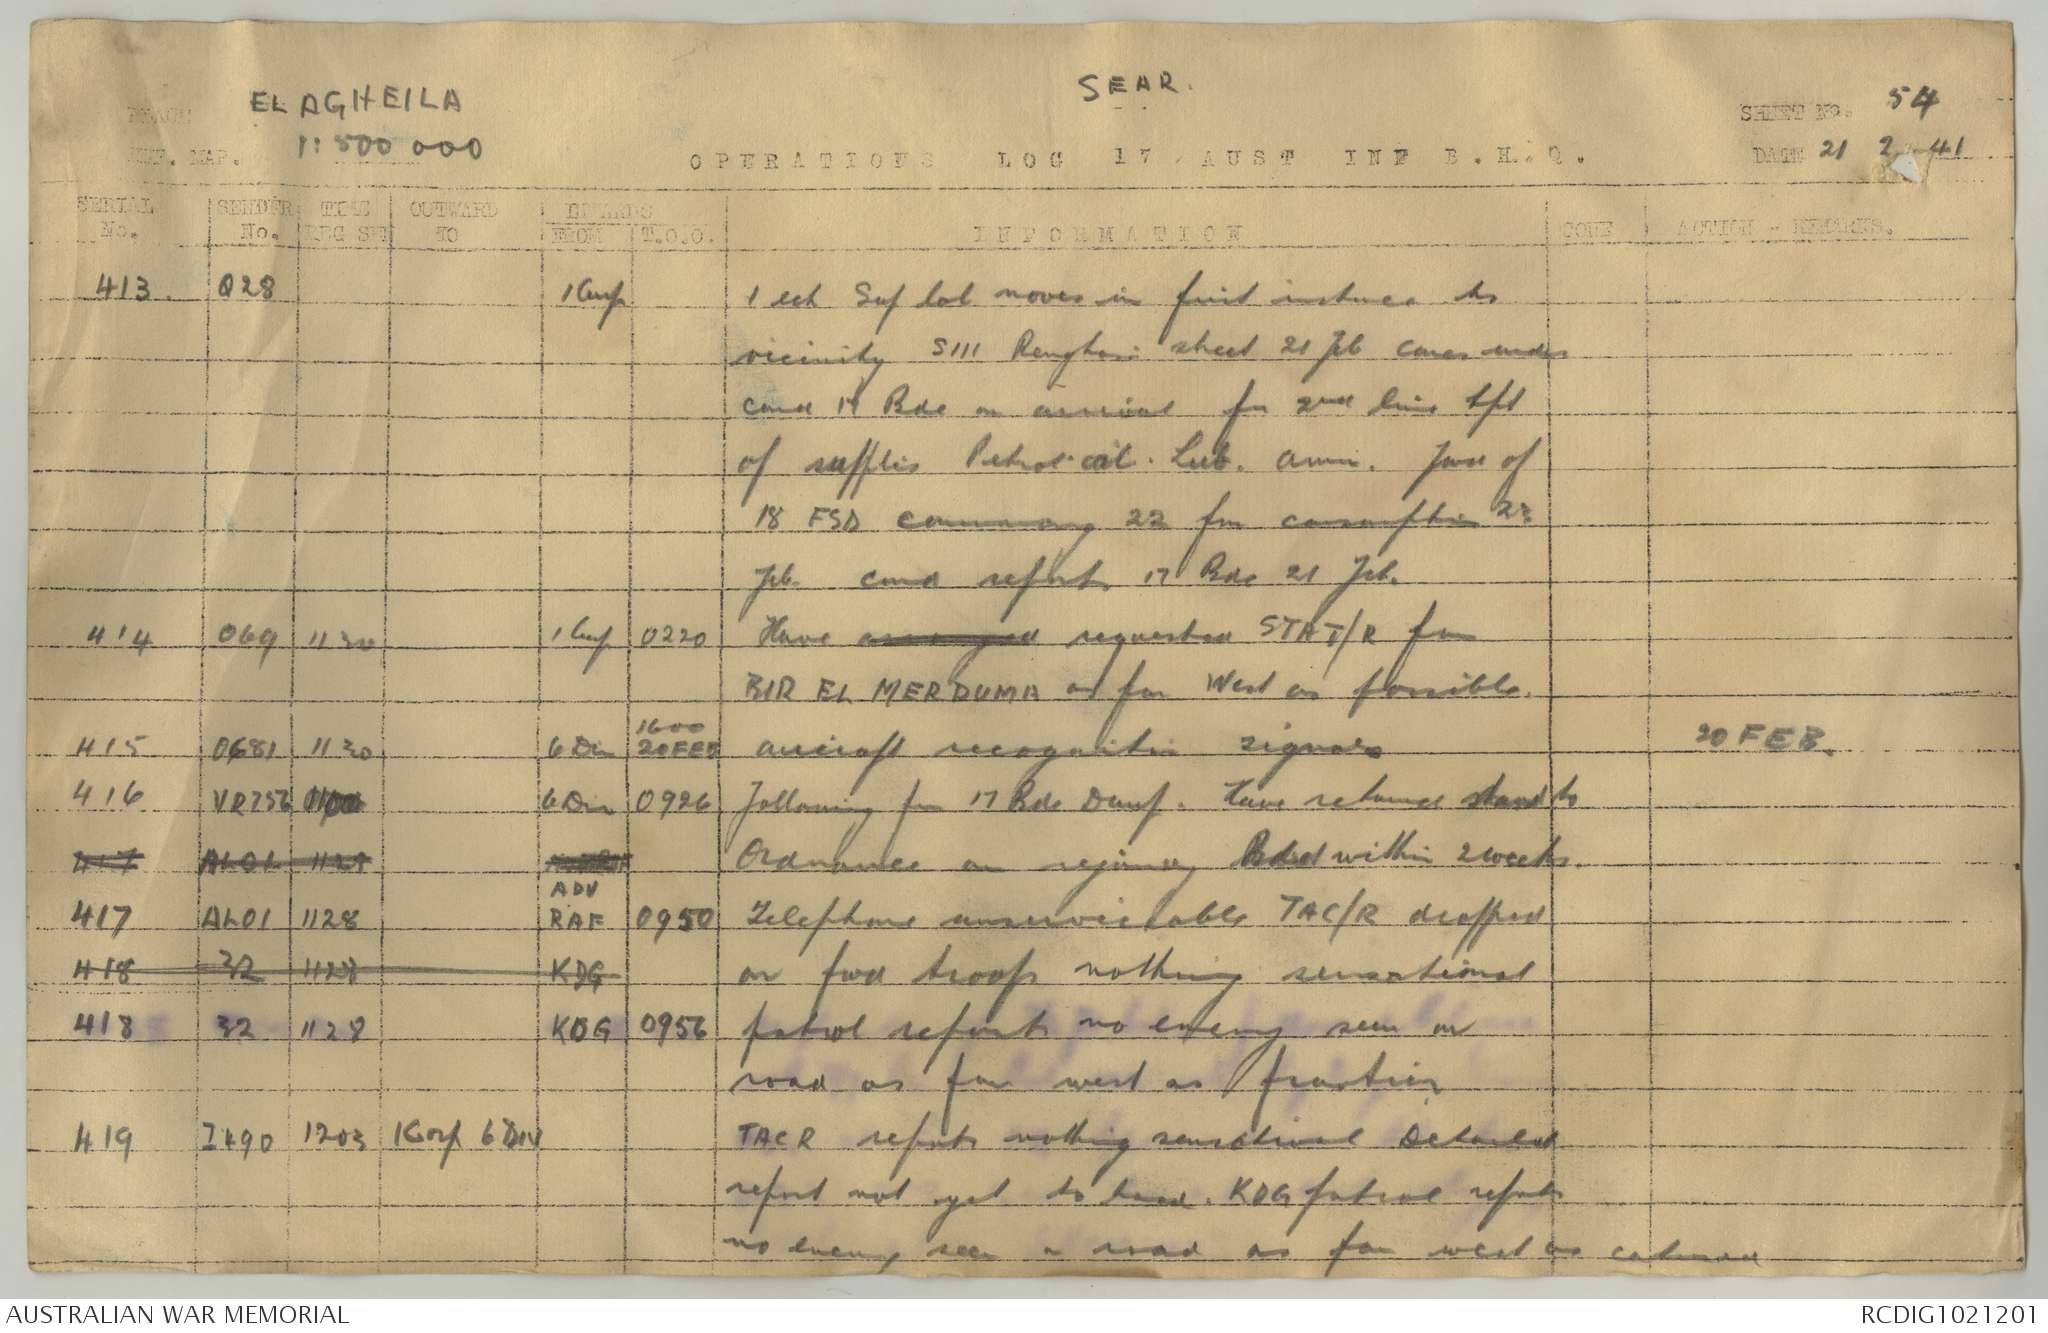 EL AGHEILA
SEAR.
SHEET NO. 54
REF. MAP. 1:500 000
OPERATIONS LOG 17 AUST INF B.H.Q.
DATE 21 2 41
SERIAL No. SENDER No. TIME REC SENT OUTWARD TO INWARDS FROM T.O.O. INFORMATION CODE ACTION - REMARKS.
413. Q28 1 Corp 1 ech Sup Col moves in first instance to
vicinity S111 Benghasi sheet 21 Feb comes under
comd 17 Bde on arrival for 2nd line tpt
of supplies Petrol. oil. Lub. amn. of
18 FSD 22 for consumption 23
Feb. comd reports 17 Bde 21 Feb.
414 069 1130 1 Corp 0220 Have arranged requested STAT/R for
BIR EL MERDUMA as far West as possible.
415 0681 1130 6 Div 1600 20 FEB aircraft recognition signals 20 FEB.
416 VR756 1100 6 Div 0926 Following for 17 Bde Dump. Have to
Ordnance on rejoining Bde within 2 weeks.
417 AL01 1128
417 AL01 1128 ADV RAF 0950 Telephone unserviceable TAC/R dropped
418 32 1128 KDG on fwd troops nothing sensational
418 32 1128 KDG 0956 patrol reports no enemy seen on
road as far west as frontier
419 I490 1203 1 Corp 6 DIV TACR reports nothing sensational Detailed
report not yet to hand. KDG patrol reports
no enemy seen on road as far west as
AUSTRALIAN WAR MEMORIAL
RCDIG1021201